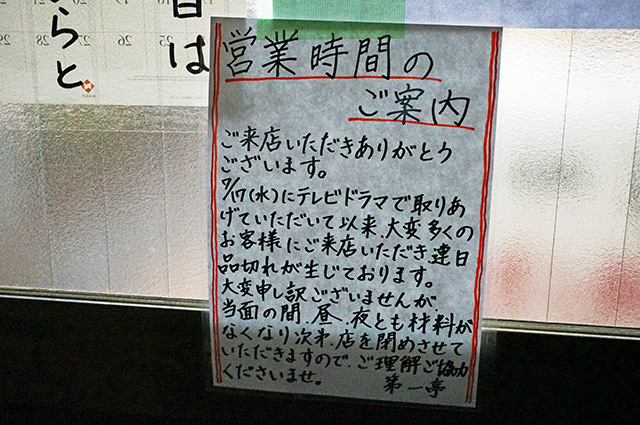 日は
らと
営業時間の
ご案内
ご来店いただきありがとう
ございます。
7/17(水)にテレビドラマで取りあ
げていただいて以来、大変多くの
お客様にご来店いただき連日
品切れが生じております。
大変申し訳ございませんが
当面の間、昼、夜とも材料が
なくなり次第、店を閉めさせて
いただきますので、ご理解ご協力
くださいませ。
第一亭